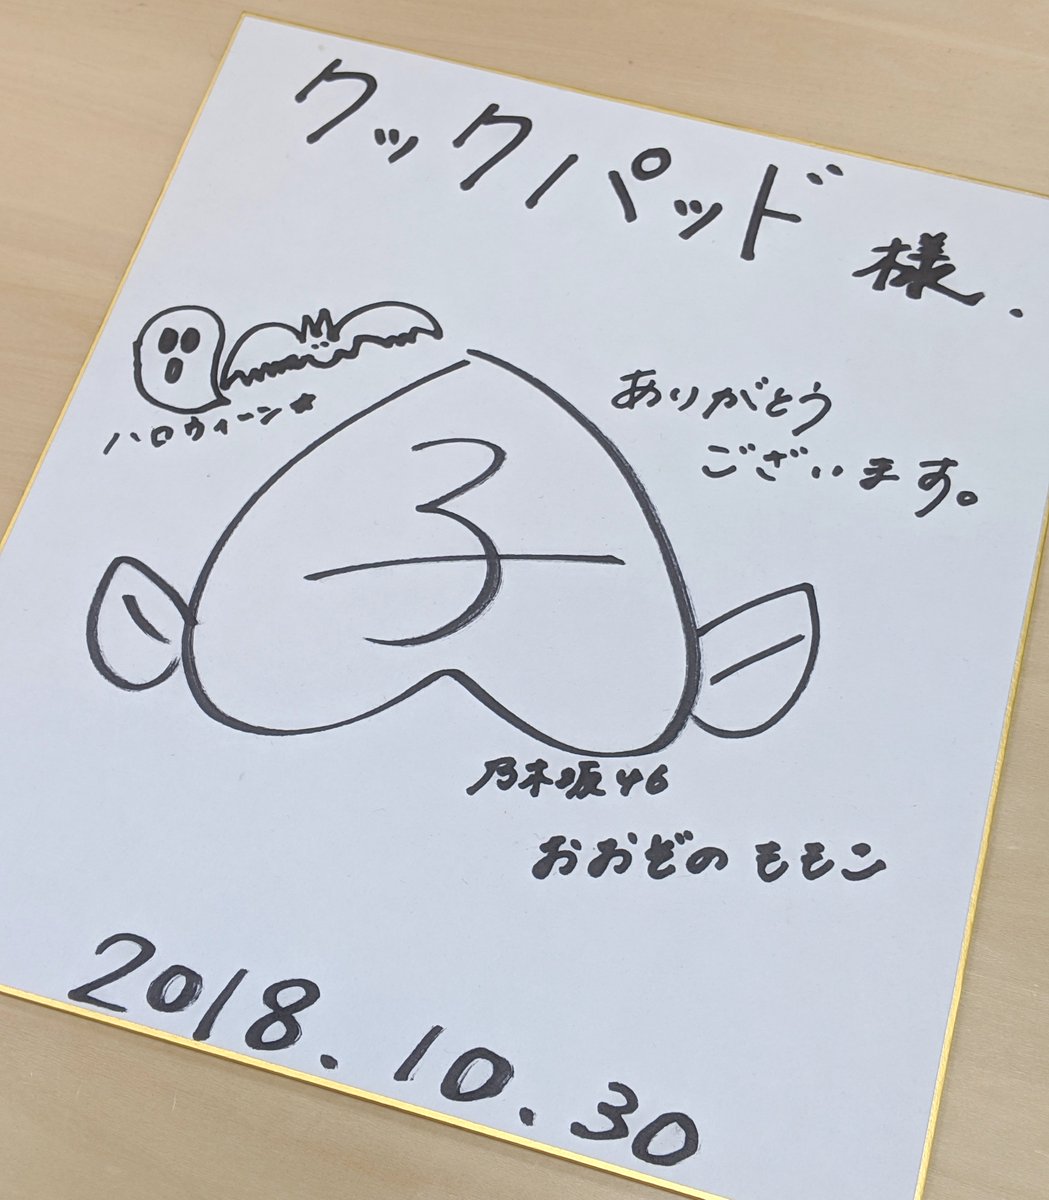 クックパッド様.
ハロウィーン☆
ありがとう
ございます。
子
乃木坂46
おおぞの ももコ
2018.10.30